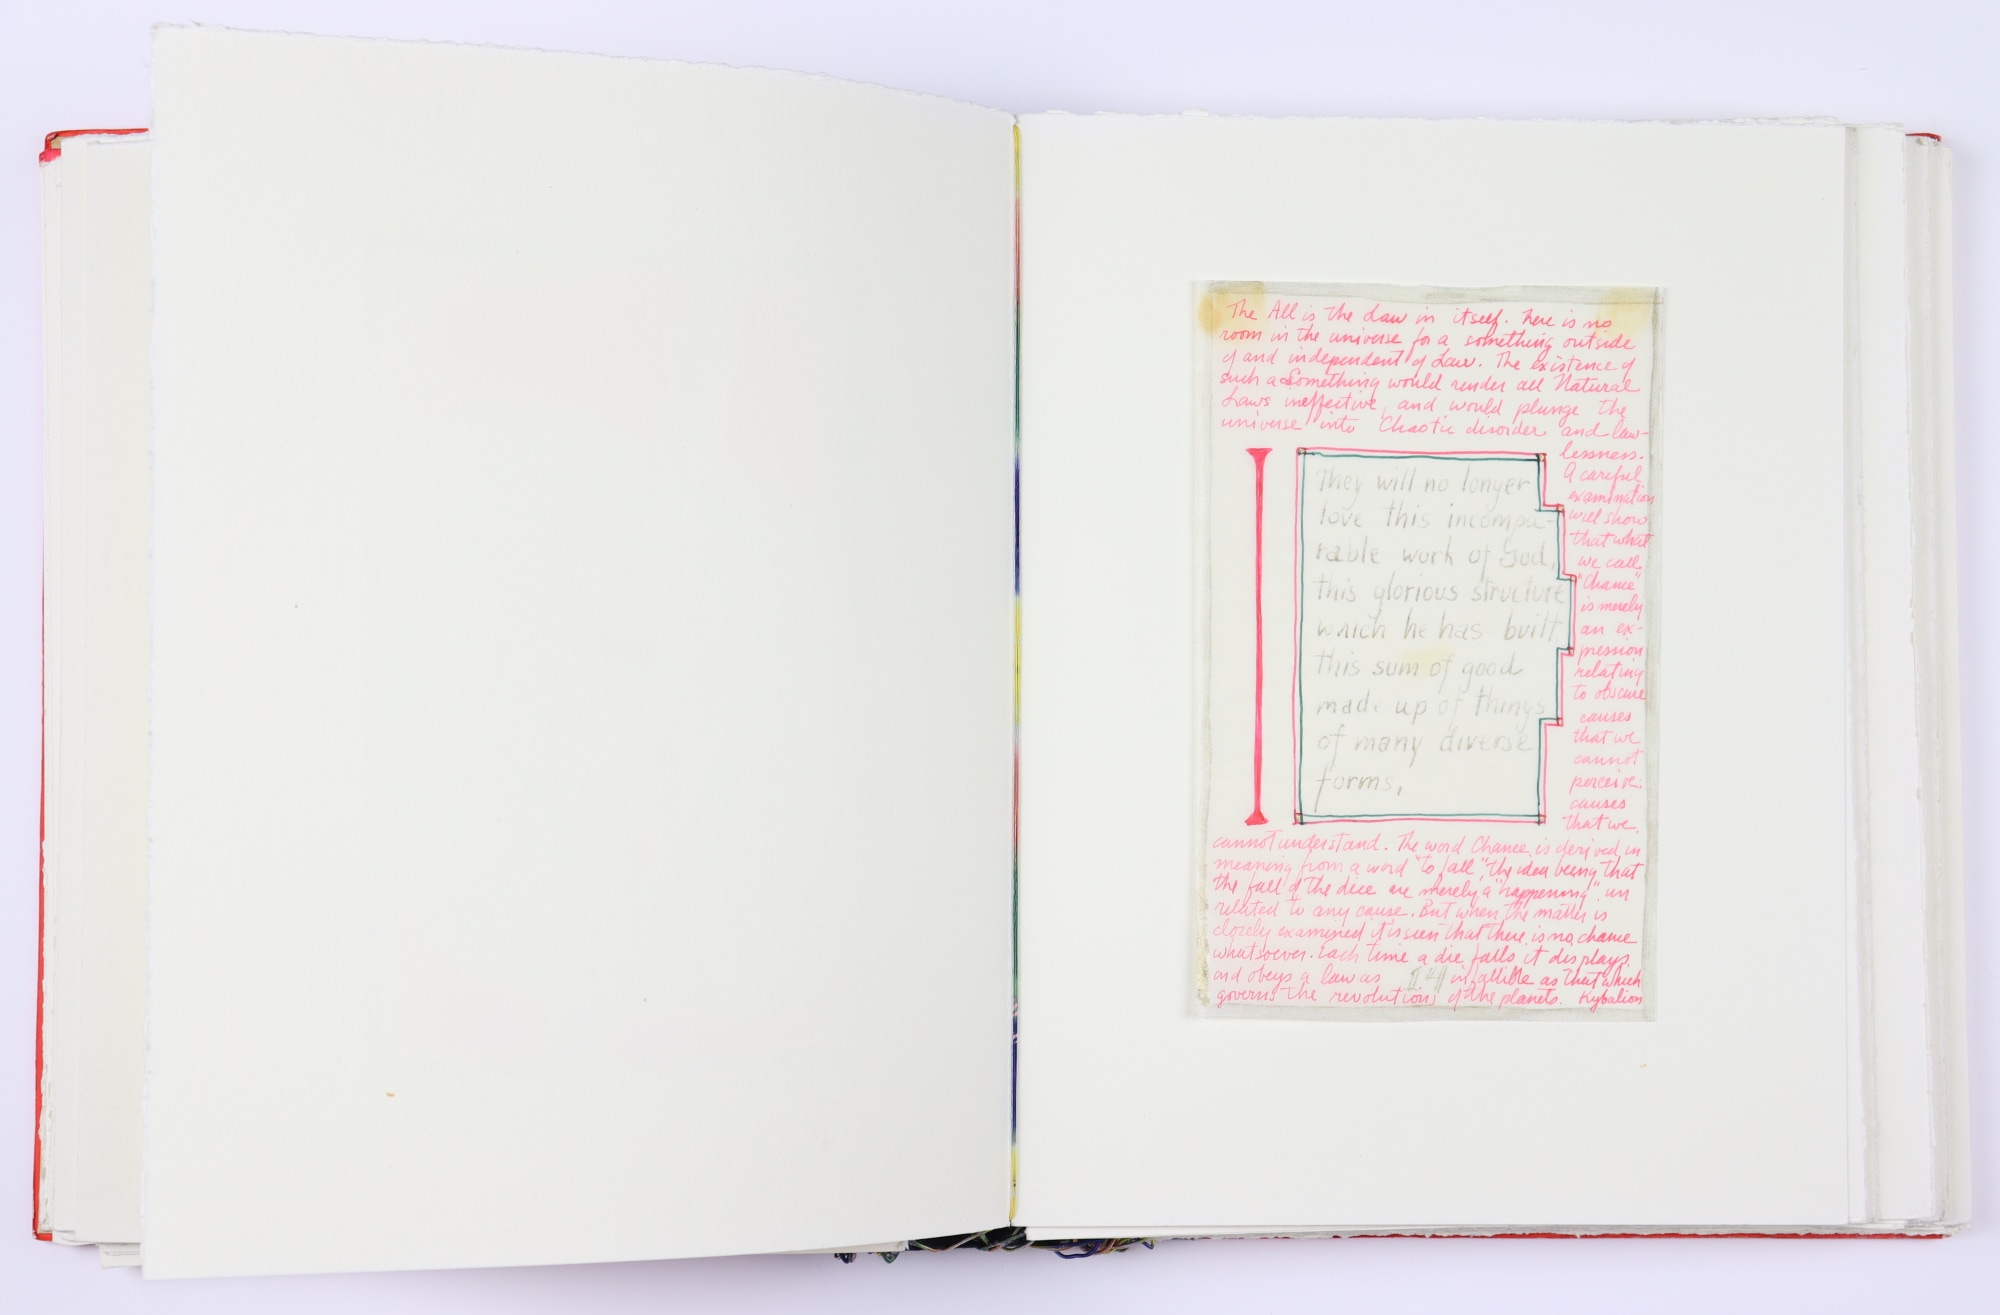 The All is the Law in itself. There is no
room in the universe for a something outside
of and independent of Law. The existence of
such a Something would render all Natural
Laws ineffective, and would plunge the
universe into Chaotic disorder and law-
lessness.
A careful
examination
will show
that what
we call
"Chance"
is merely
an ex-
pression
relating
to obscure
causes
that we
cannot
perceive;
causes
that we
cannot understand. The word Chance is derived in
meaning from a word "to fall", the idea being that
the fall of the dice are merely a "happening" un
related to any cause. But when the matter is
closely examined it is seen that there is no chance
whatsoever. Each time a die falls it displays
and obeys a law as infallible as that which
governs the revolutions of the planets. Kybalion
They will no longer
love this incompa-
rable work of God,
this glorious structure
which he has built,
this sum of good
made up of things
of many diverse
forms,